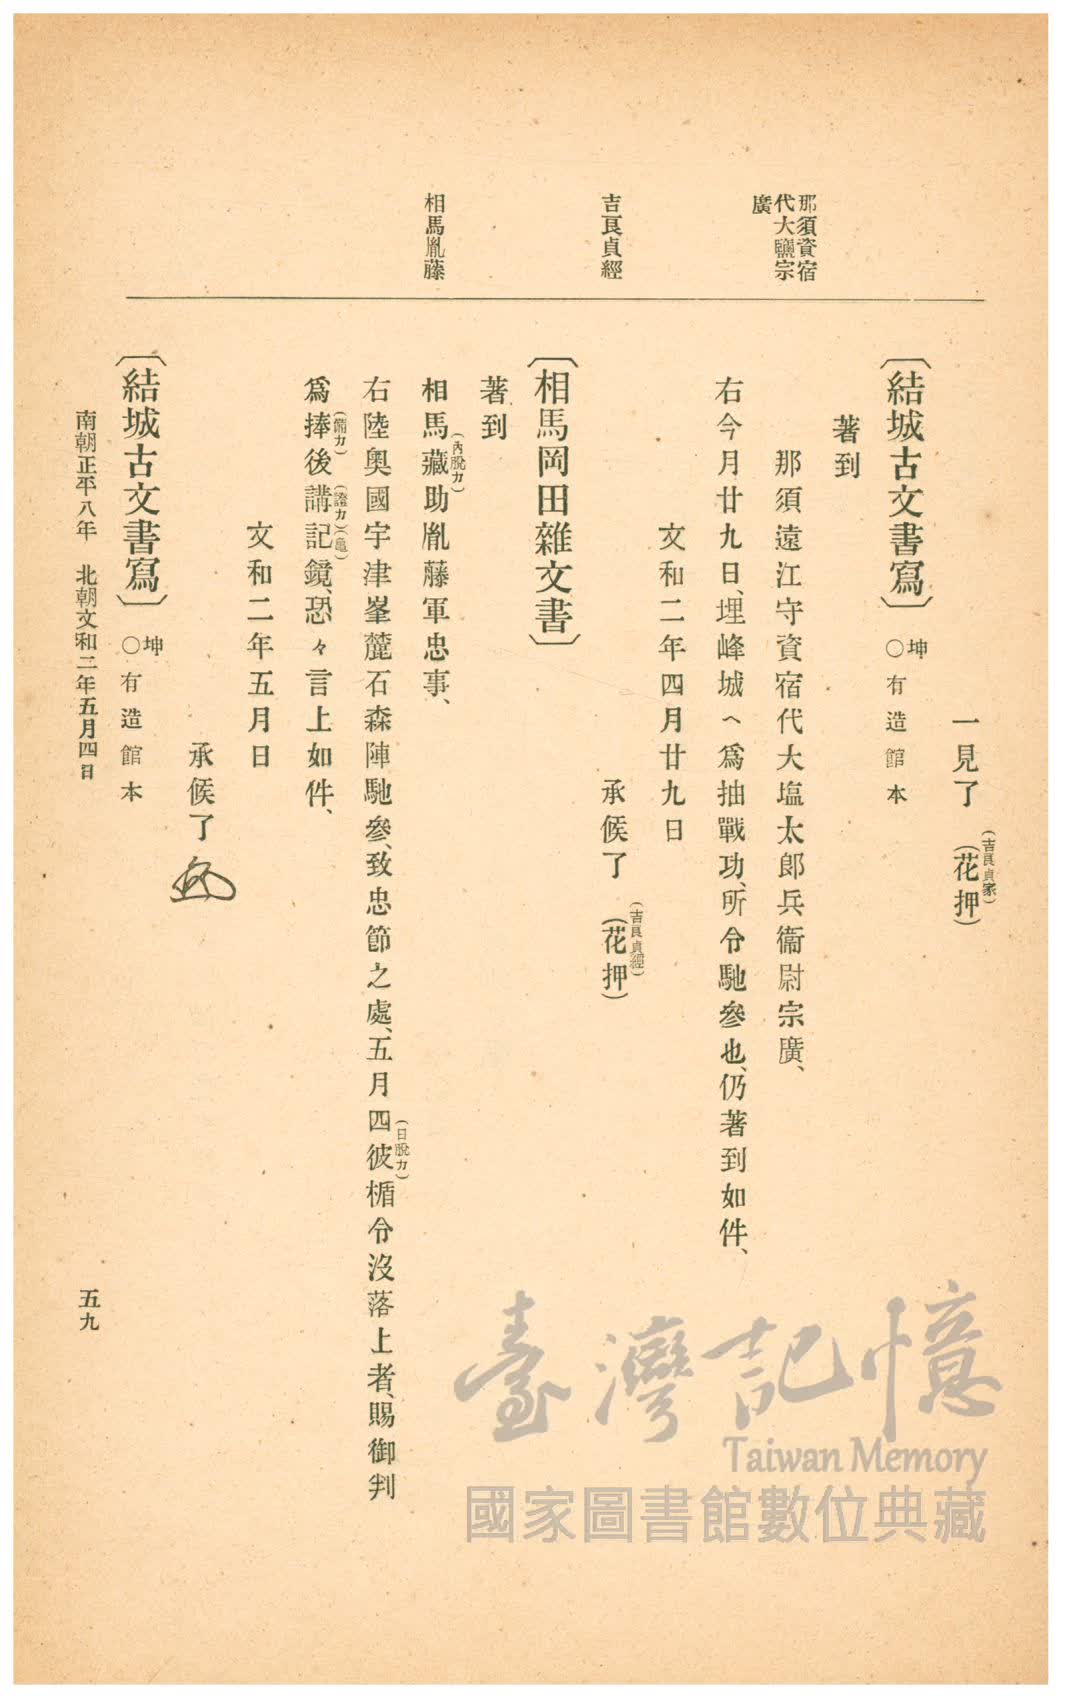 那須資宿
代大鹽宗
廣
吉良貞經
相馬胤藤
一見了 (花押)
(吉良貞家)
〔結城古文書寫〕 坤
○有造館本
著到
那須遠江守資宿代大塩太郎兵衞尉宗廣、
右今月廿九日、埋峰城へ爲抽戰功、所令馳參也、仍著到如件、
文和二年四月廿九日
承候了 (花押)
(吉良貞經)
〔相馬岡田雜文書〕
著到
相馬藏助胤藤軍忠事、
(內脫カ)
右陸奧國宇津峯麓石森陣馳參、致忠節之處、五月四彼楯令沒落上者、賜御判
(日脫カ)
爲捧後講記鏡、恐々言上如件、
(備カ)(證カ)(龜)
文和二年五月日
承候了
〔結城古文書寫〕 坤
○有造館本
南朝正平八年 北朝文和二年五月四日
五九
臺灣記憶
Taiwan Memory
國家圖書館數位典藏